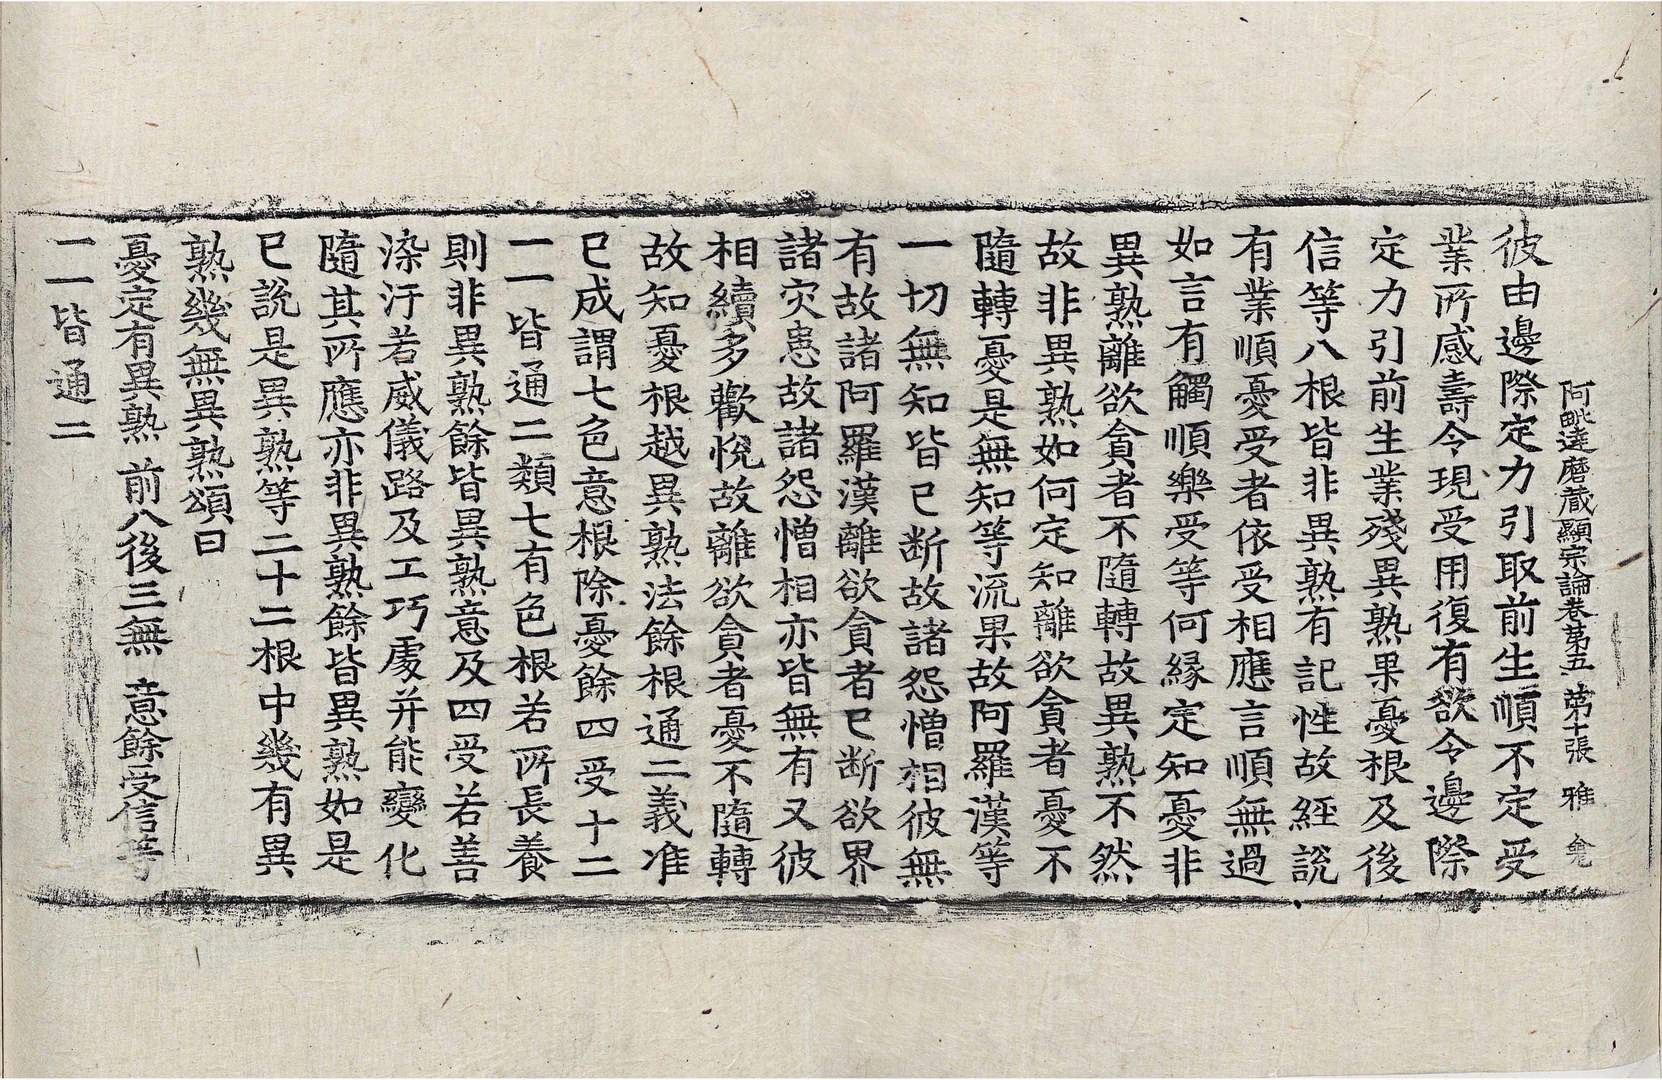 阿毗達磨藏顯宗論卷第五 第十張 雅
彼由邊際定力引取前生順不定受
業所感壽令現受用復有欲令邊際
定力引前生業殘異熟果憂根及後
信等八根皆非異熟有記性故經說
有業順憂受者依受相應言順無過
如言有觸順樂受等何緣定知憂非
異熟離欲貪者不隨轉故異熟不然
故非異熟如何定知離欲貪者憂不
隨轉憂是無知等流果故阿羅漢等
一切無知皆已断故諸怨憎相彼無
有故諸阿羅漢離欲貪者已断欲界
諸灾患故諸怨憎相亦皆無有又彼
相續多歡悅故離欲貪者憂不隨轉
故知憂根越異熟法餘根通二義准
已成謂七色意根除憂餘四受十二
一一皆通二類七有色根若所長養
則非異熟餘皆異熟意及四受若善
染汙若威儀路及工巧處并能變化
隨其所應亦非異熟餘皆異熟如是
已說是異熟等二十二根中幾有異
熟幾無異熟頌曰
憂定有異熟 前八後三無 意餘受信等
一一皆通二